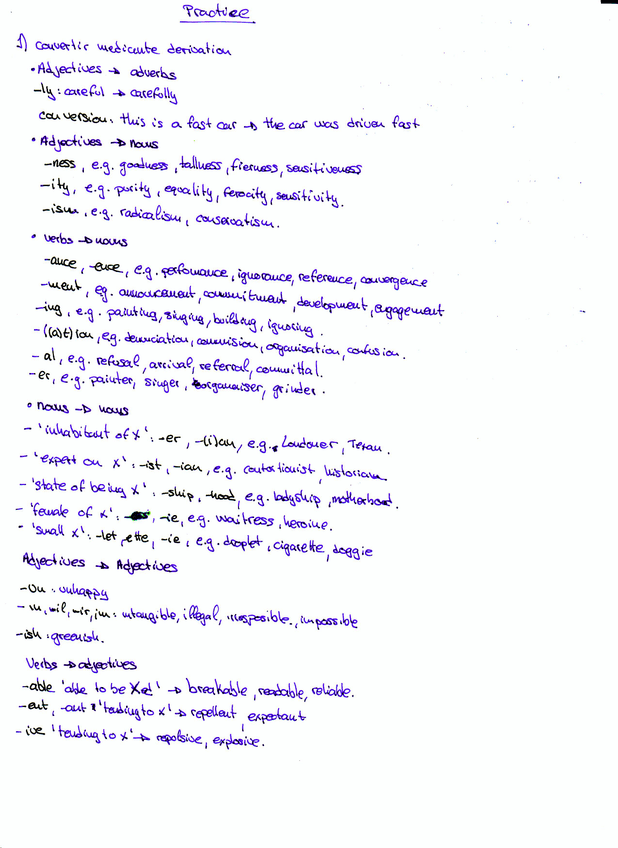 Practice
1) convertir mediante derivation
• Adjectives → adverbs
-ly: careful → carefully
conversion: this is a fast car → the car was driven fast
• Adjectives → nouns
-ness, e.g. goodness, tallness, fierness, sensitiveness
-ity, e.g. purity, equality, ferocity, sensitivity.
-ism, e.g. radicalism, conservatism.
• verbs → nouns
-ance, -ence, e.g. perfomance, ignorance, reference, convergence
-ment, eg. announcement, commitment, development, engagement
-ing, e.g. painting, singing, building, ignoring.
-((a)t)ion, e.g. denunciation, commision, organisation, confusion.
-al, e.g. refusal, arrival, referral, committal.
-er, e.g. painter, singer, organaiser, grinder.
• nouns → nouns
- 'inhabitant of x': -er, -(i)an, e.g. Londoner, Texan.
- 'expert on x': -ist, -ian, e.g. contortionist, historian
- 'state of being x': -ship, -hood, e.g. ladyship, motherhood.
- 'female of x': -ie, e.g. waitress, heroine.
- 'small x': -let, ette, -ie, e.g. droplet, cigarette, doggie
Adjectives → Adjectives
-un: unhappy
- in, -il, -ir, im: intangible, illegal, irresposible., impossible
-ish: greenish.
Verbs → adjectives
-able 'able to be Xed' → breakable, readable, reliable.
-ent, -ant 'tending to x' → repellent, expectant
- ive 'tending to x' → repolsive, explosive.